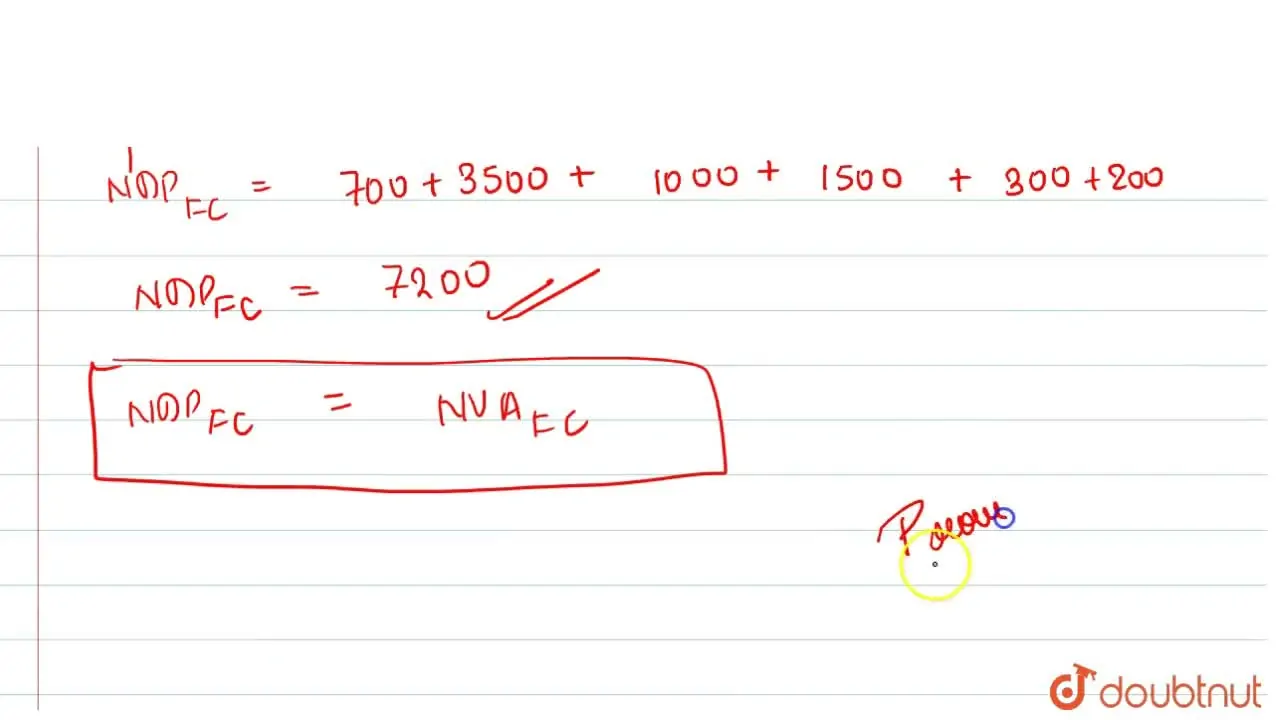 NDP FC = 700 + 3500 + 1000 + 1500 + 300 + 200
NDP FC = 7200
NDP FC = NVA FC
doubtnut